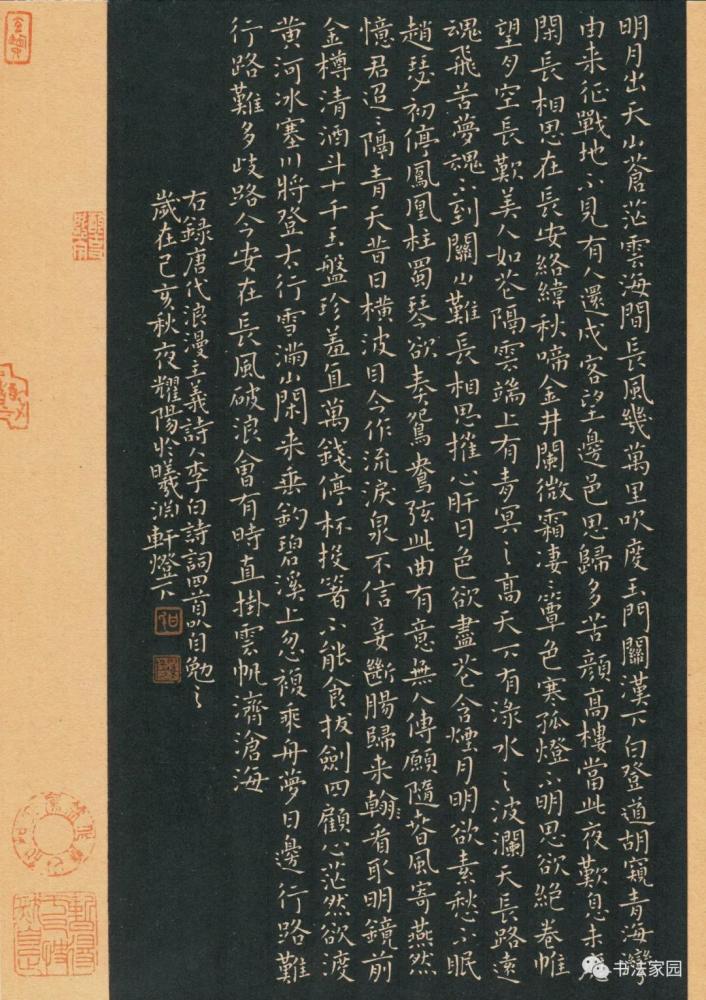 明月出天山蒼茫雲海間長風幾萬里吹度玉門關漢下白登道胡窺青海灣
由来征戰地不見有人還戍客望邊邑思歸多苦顏高樓當此夜歎息未
閑長相思在長安絡緯秋啼金井闌微霜淒〻簟色寒孤燈不明思欲絕卷帷
望月空長歎美人如花隔雲端上有青冥之高天下有淥水之波瀾天長路遠
魂飛苦夢魂不到關山難長相思摧心肝日色欲盡花含煙月明欲素愁不眠
趙瑟初停鳳凰柱蜀琴欲奏鴛鴦弦此曲有意無人傳願隨春風寄燕然
憶君迢〻隔青天昔日橫波目今作流淚泉不信妾斷腸歸来看取明鏡前
金樽清酒斗十千玉盤珍羞直萬錢停杯投箸不能食拔劍四顧心茫然欲渡
黄河冰塞川將登太行雪滿山閑来垂釣碧溪上忽複乘舟夢日邊行路難
行路難多歧路今安在長風破浪會有時直掛雲帆濟滄海
右錄唐代浪漫主義詩人李白詩詞四首以自勉〻
歲在己亥秋夜耀陽於曦淵軒燈下
书法家园